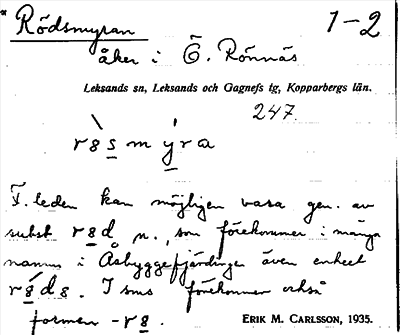 * Rödsmyran 1-2
åker i Ö. Rönnäs
Leksands sn, Leksands och Gagnefs tg, Kopparbergs län.
247.
r8s m y̱ra
F. leden kan möjligen vara gen. av
subst r8d n., som förekommer i många
namn i Åsbyggefjärdingen även enkelt
r8d8. I sms förekommer också
formen -r8.
ERIK M. CARLSSON, 1935.